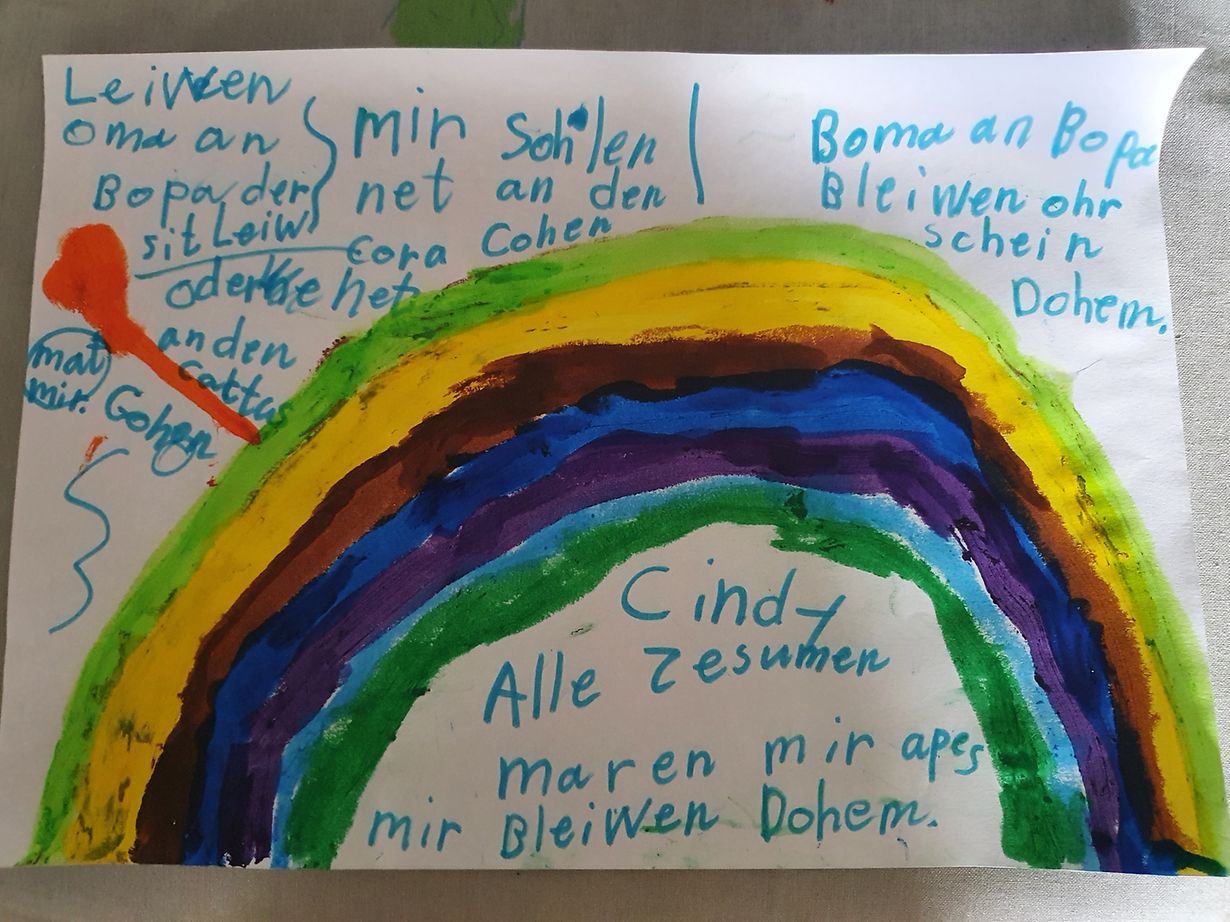 Leiwen
oma an
Bopa der
sit Leiw
oder
an den
Cattas
mat
mir. Gohen
mir Sohlen
net an den
Cora Cohen
Boma an Bopa
Bleiwen ohr
schein
Dohem.
Cindy
Alle zesumen
maren mir apes
mir Bleiwen Dohem.